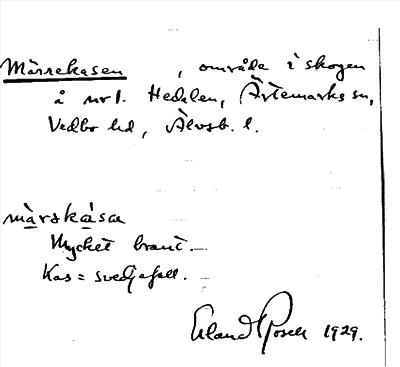 Märrekasen , område i skogen
å nr 1. Hedalen, Ärtemarks sn,
Vedbo hd, Älvsb. l.
märskåsa
Mycket brant.
Kas = svedjefall.
Erland Rosell 1929.